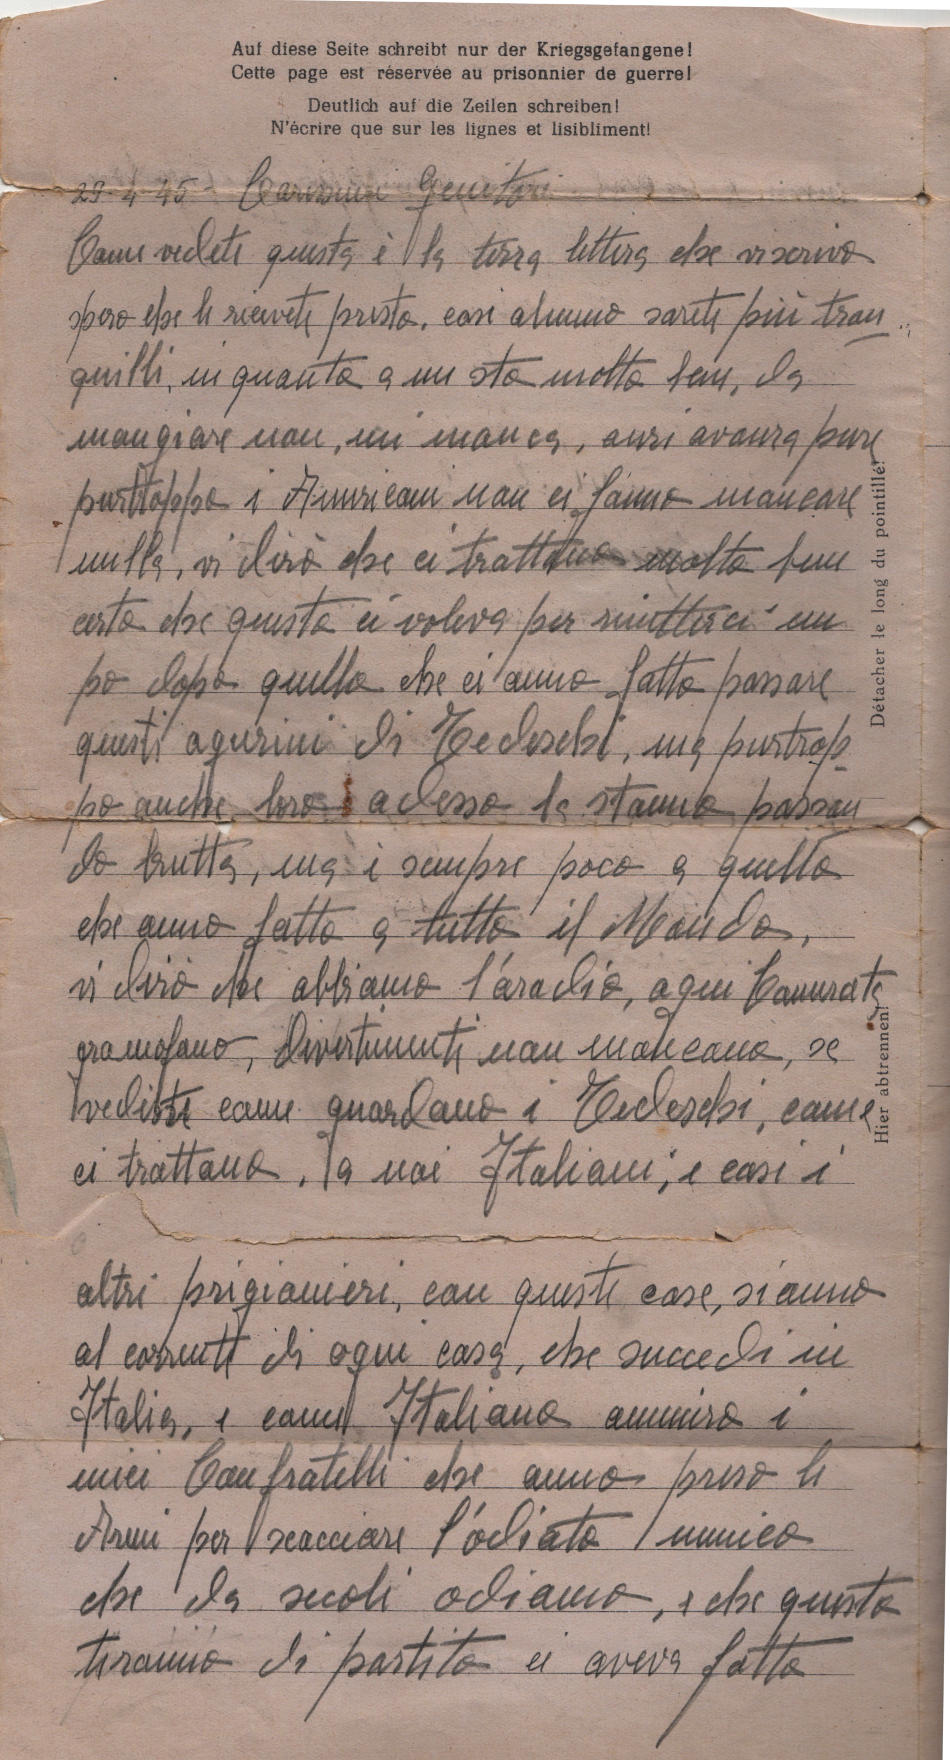 Auf diese Seite schreibt nur der Kriegsgefangene!
Cette page est réservée au prisonnier de guerre!
Deutlich auf die Zeilen schreiben!
N'écrire que sur les lignes et lisibliment!
29-4-45- Carissimi Genitori
Come vedete questa è la terza lettera che vi scrivo
spero che le ricevete presto, così almeno sarete più tran
quilli, in quanto a me sto molto bene, da
mangiare non, mi manca, anzi avanza pure
purttoppo i Americani non ci fanno mancare
nulla, vi dirò che ci trattano molto bene
certo che questo ci voleva per rimetterci un
po dopo quello che ci anno fatto passare
questi aguzini di Tedeschi, ma purtrop-
po anche loro adesso le stanno passan
do brutta, ma è sempre poco a quello
che anno fatto a tutto il Mondo,
vi dirò che abbiamo l'aradio, a ogni Camerata
gramofano, divertimenti non mancano, se
vediste come guardano i Tedeschi, come
ci trattano, a noi Italiani, e così i
altri prigionieri, con queste cose, si anno
al corrente di ogni cosa, che succedi in
Italia, e come Italiano ammiro i
miei Confratelli che anno preso le
Armi per scacciare l'odiato nemico
che da secoli odiamo, e che questo
tiranno di partito ci aveva fatto
Détacher le long du pointillé!
Hier abtrennen!